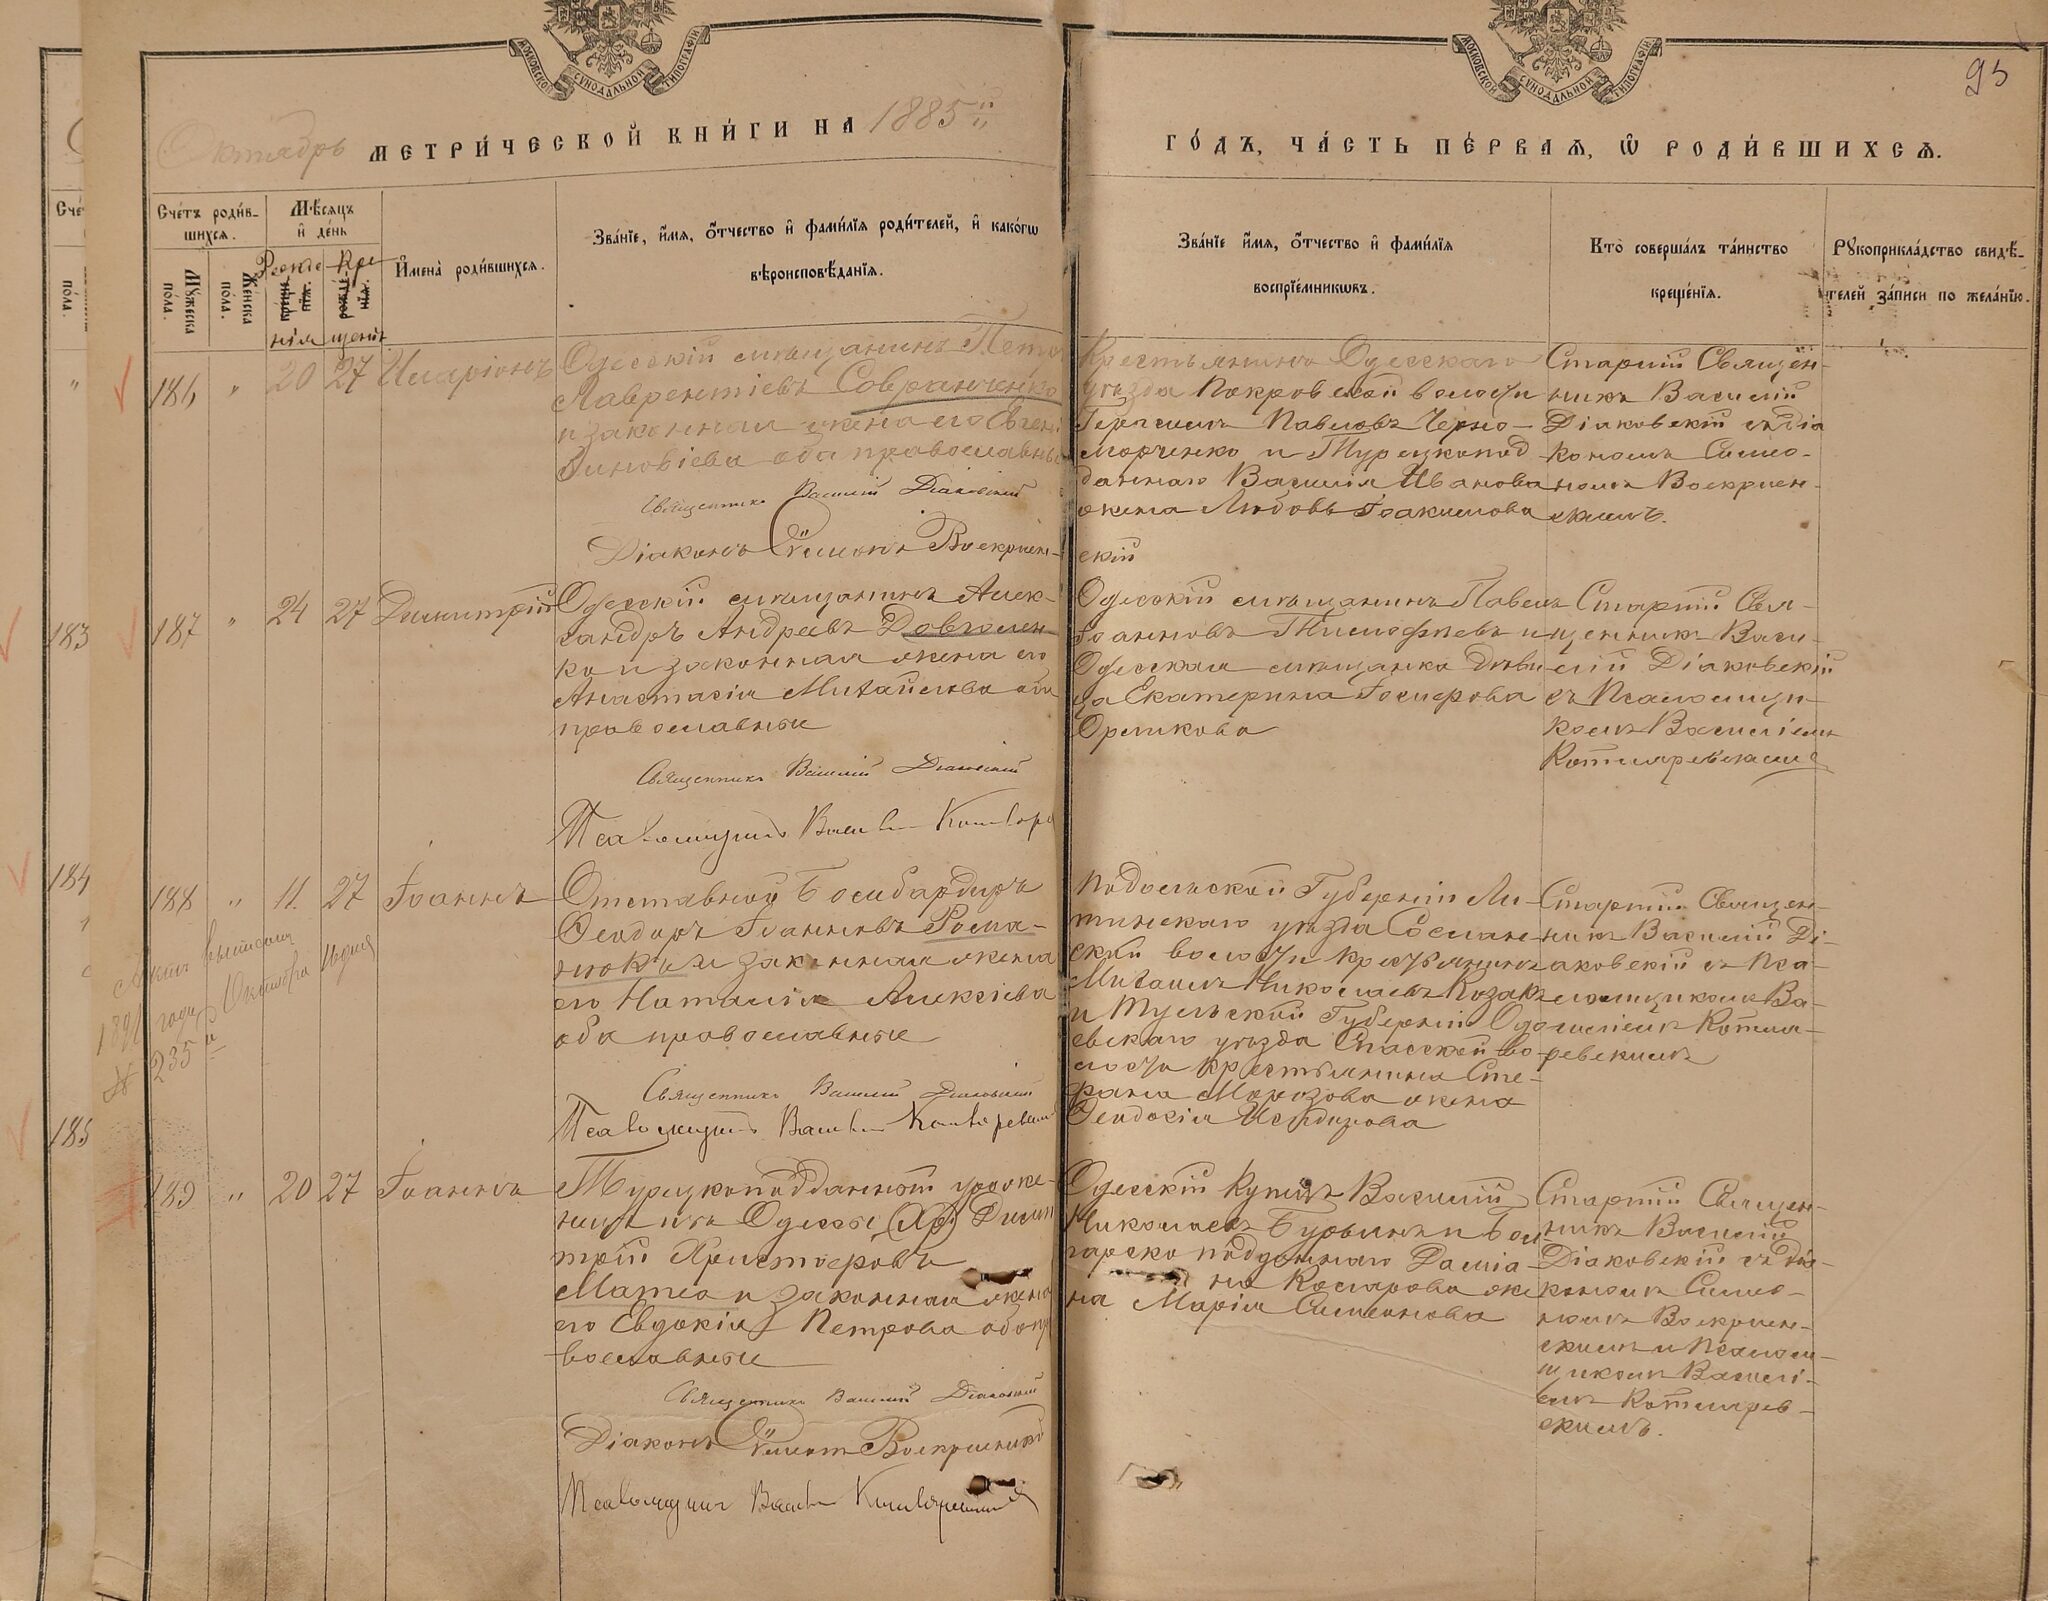 МОСКОВСКОЙ СѴНОДАЛЬНОЙ ТИПОГРАФІИ
МОСКОВСКОЙ СѴНОДАЛЬНОЙ ТИПОГРАФІИ
95
Октябрь МЕТРИ́ЧЕСКОЙ КНИ́ГИ НА 1885й
ГО́ДЪ, ЧА́СТЬ ПЕ́РВАЯ, Ѽ РОДИ́ВШИХСЯ.
Сче́тъ роди́в-
шихся.
Мѣ́сяцъ
и҆ де́нь
Мꙋ́жеска по́ла.
Же́нска по́ла.
Рожде
нія
Кре
щенія
И҆мена̀ роди́вшихся.
Зва́нїе, и҆́мя, ѻ҆́тчество и҆ фами́лїя роди́телей, и҆ како́гѡ
вѣроисповѣ́данїя.
Зва́нїе и҆́мя, ѻ҆́тчество и҆ фами́лїя
воспрїе́мникѡвъ.
Кто̀ соверша́лъ та́инство
креще́нїя.
Рꙋкоприкла́дство свидѣ́-
телей за́писи по жела́нїю.
186 " 20 27 Иларіонъ
Одесскій мѣщанинъ Петр
Лаврентіевъ Совранченко
и законная жена его Евгені
Зиновіева оба православны
Священникъ Василій Діаковскій
Діаконъ Симонъ Воскресен-
скій
Крестьянинъ Одесскаго
уѣзда Покровской волости
Герасимъ Павловъ Черно-
морченко и Турецкопод
даннаго Василія Иванова
жена Любовь Іоакимова
Старшій Священ-
никъ Василій
Діаковскій съ діа
кономъ Симо-
номъ Воскресен-
скимъ.
187 " 24 27 Димитрій
Одесскій мѣщанинъ Алек-
сандръ Андреевъ Довголен-
ко и законная жена его
Анастасія Михайлова оба
православные
Священникъ Василій Діаковскій
Псаломщикъ Василій
Одесскій мѣщанинъ Павелъ
Іоанновъ Тимофеевъ и
Одесская мѣщанка дѣви
ца Екатерина
Орликова
Старшій Свя-
щенникъ Васи-
лій Діаковскій
съ Псаломщи-
комъ Василіемъ
Котляревскимъ
188 " 11 27 Іоаннъ
Отставной Бомбардиръ
Ѳеодоръ Іоанновъ Рома-
нюкъ и законная жена
его Наталія Алексіева
оба православные
Священникъ Василій Діаковскій
Псаломщикъ Василій Котляревскій
Подольской Губерніи Ли-
тинскаго уѣзда
ской волости крестьянинъ
Михаилъ Николаевъ Козакъ
и Тульской Губерніи Одо
евскаго уѣзда Спасской во
лости крестьянина Сте-
фана Морозова жена
Ѳеодосія
Старшій Священ-
никъ Василій Ді-
аковскій съ Пса-
ломщикомъ Ва-
силіемъ Котля-
ревскимъ
Актъ выписанъ
1891 года Октября
№ 235й
189 " 20 27 Іоаннъ
Турецкоподданный уроже-
нецъ изъ Одессы Дими
трій Христофоровъ
Матео и законная жена
его Евдокія Петрова оба пр
вославные
Священникъ Василій Діаковскій
Діаконъ Симонъ Воскресенскій
Псаломщикъ Василій Котляревскій
Одесскій Купецъ Василій
Николаевъ и Бол
гарско подданнаго Даміа-
на жe
на Марія Симеонова
Старшій Священ-
никъ Василій
Діаковскій съ Діа-
кономъ Симо-
номъ Воскресен-
скимъ и Псалом-
щикомъ Василі-
емъ Котлярев-
скимъ.
183
184
185